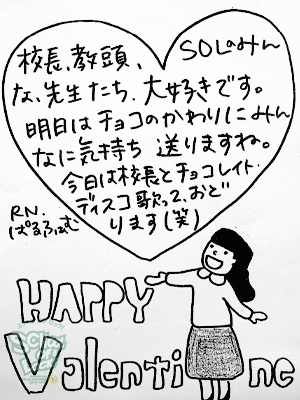 校長、教頭、SOLのみん
な、先生たち、大好きです。
明日はチョコのかわりにみん
なに気持ち送りますね。
今日は校長とチョコレイト・
ディスコ歌って、おど
ります(笑)
RN.
ぱるふぁむ
HAPPY
Valentine